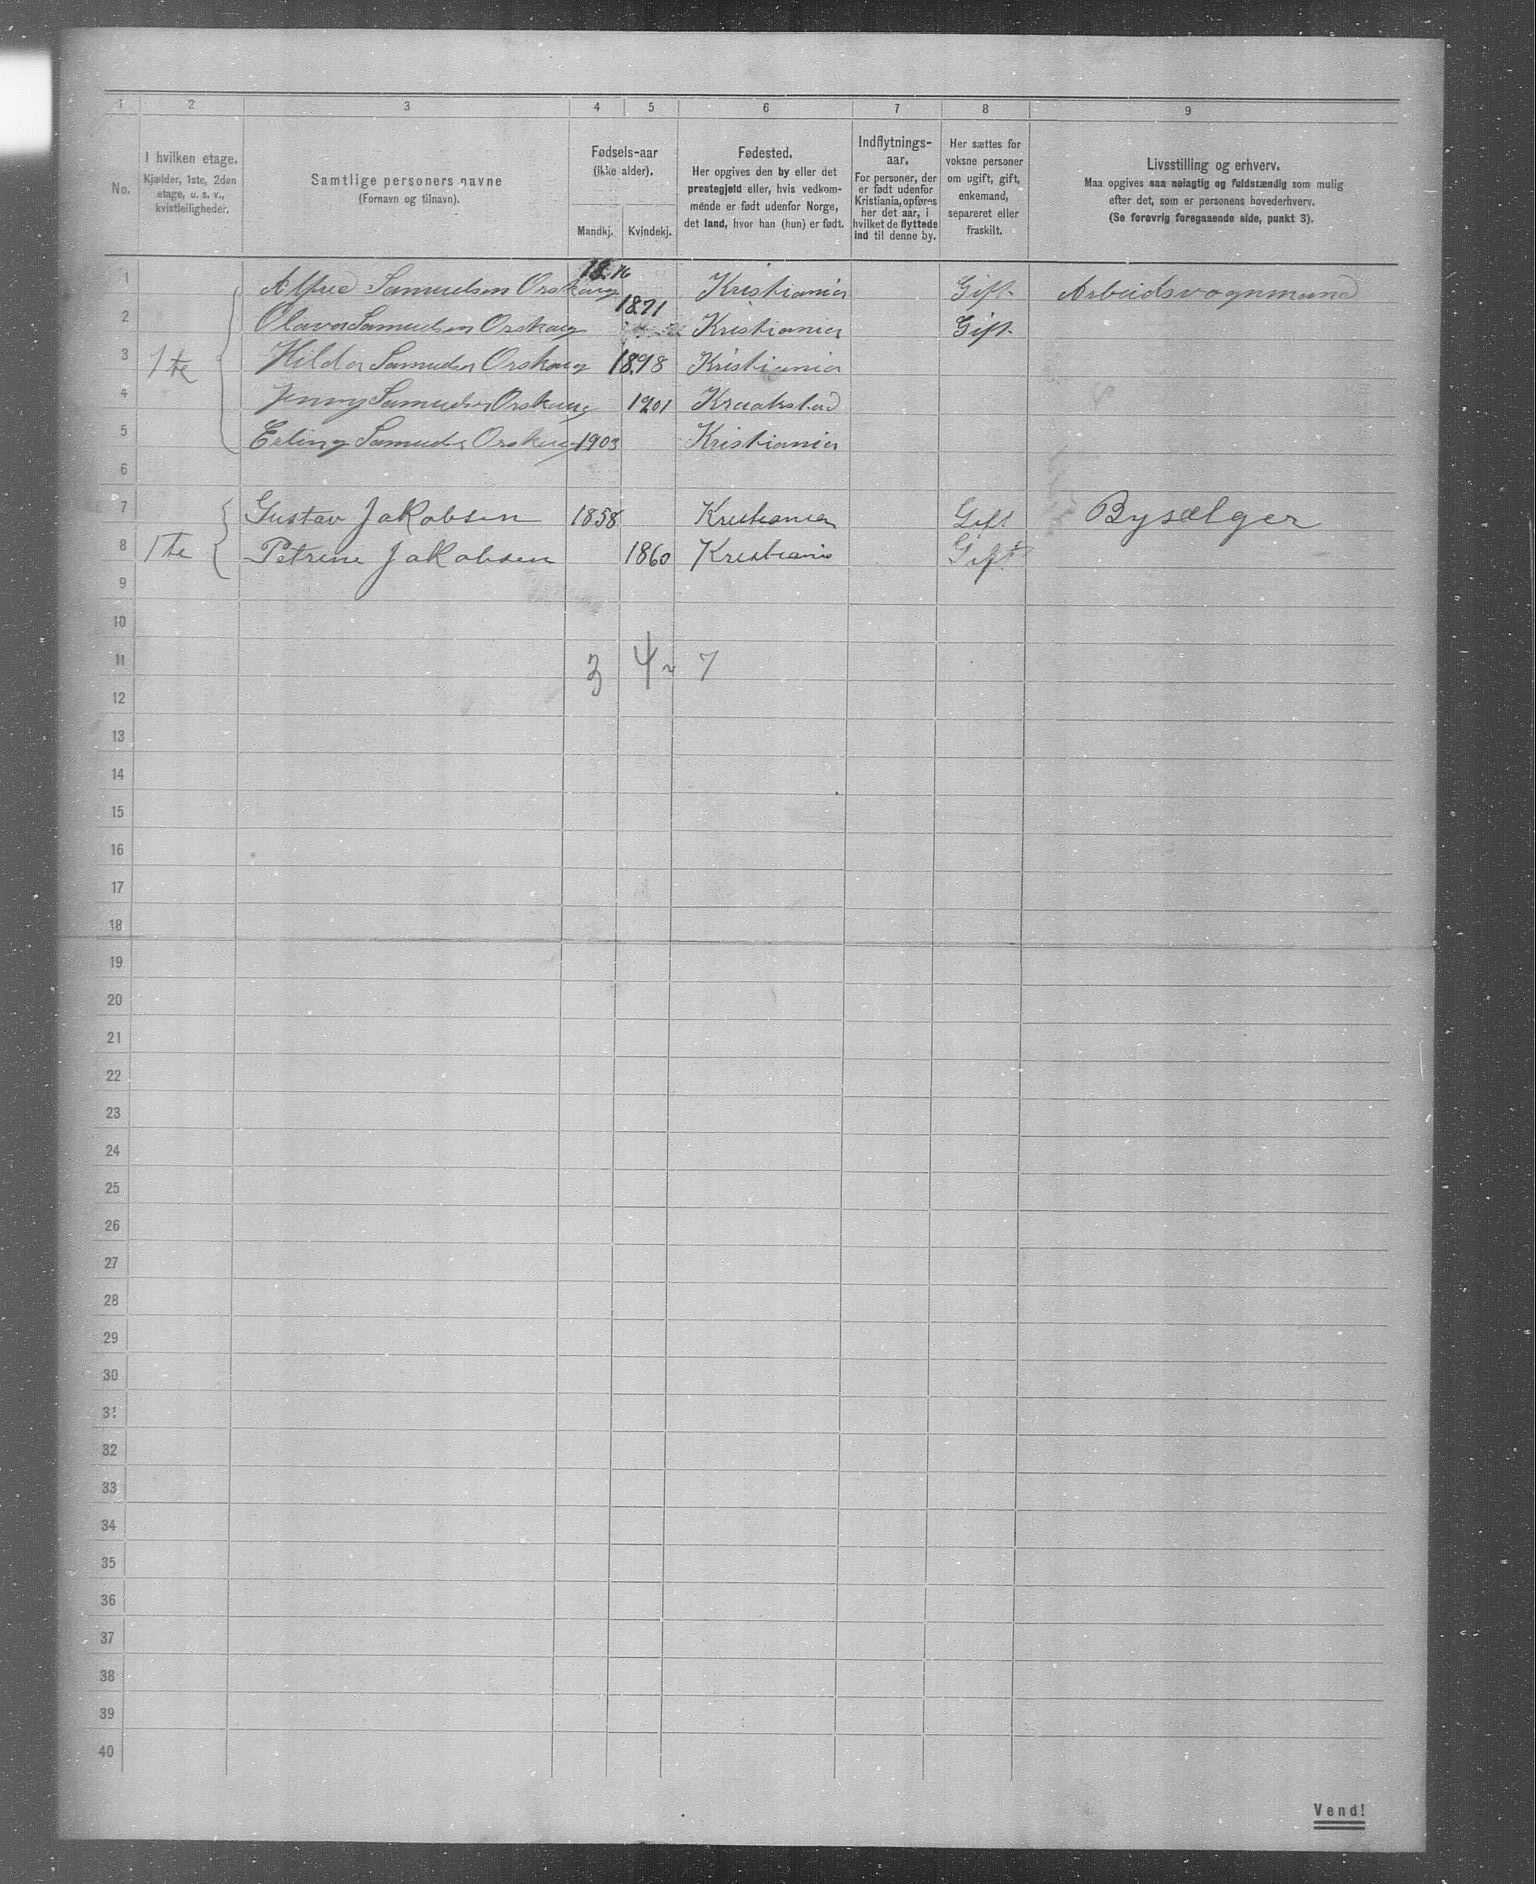 1 2 3 4 5 6 7 8 9
No.
I hvilken etage.
Kjælder, 1ste, 2den
etage, u. s. v.,
kvistleiligheder.
Samtlige personers navne
(Fornavn og tilnavn).
Fødsels-aar
(ikke alder).
Mandkj. Kvindekj.
Fødested.
Her opgives den by eller det
prestegjeld eller, hvis vedkom-
mende er født udenfor Norge,
det land, hvor han (hun) er født.
Indflytnings-
aar.
For personer, der
er født udenfor
Kristiania, opføres
her det aar, i
hvilket de flyttede
ind til denne by.
Her sættes for
voksne personer
om ugift, gift,
enkemand,
separeret eller
fraskilt.
Livsstilling og erhverv.
Maa opgives saa nøiagtig og fuldstændig som mulig
efter det, som er personens hovederhverv.
(Se forøvrig foregaaende side, punkt 3).
1 Alfred Samuelsen Orskaug 1876 Kristiania Gift Arbeidsvognmand
2 Olava Samuelsen Orskaug 1871 Kristiania Gift
3 1te Hilda Samuelsen Orskaug 1898 Kristiania
4 Jenny Samuelsen Orskaug 1901 Kraakstad
5 Erling Samuels Orskaug 1903 Kristiania
6
7 Gustav Jakobsen 1858 Kristiania Gift Bysælger
8 1te Petrine Jakobsen 1860 Kristiania Gift
9
10
11 3 4 ~ 7
12
13
14
15
16
17
18
19
20
21
22
23
24
25
26
27
28
29
30
31
32
33
34
35
36
37
38
39
40
Vend!